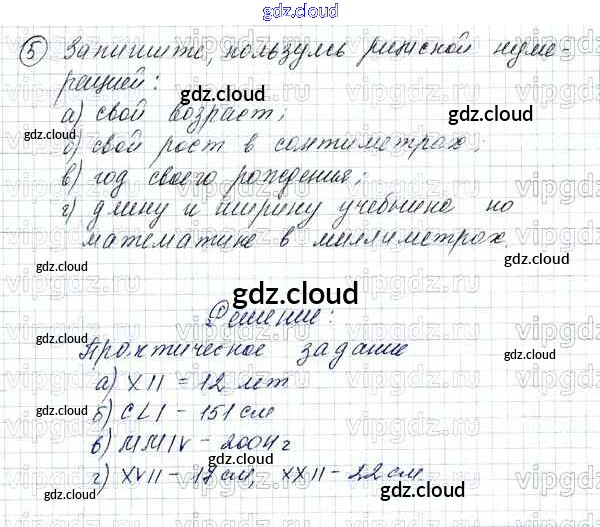 gdz.cloud
5 Запишите, пользуясь римской нуме-
рацией:
gdz.cloud
а) свой возраст;
gdz.cloud
б) свой рост в сантиметрах;
gdz.cloud
в) год своего рождения;
г) длину и ширину учебника по
gdz.cloud
математике в миллиметрах.
gdz.cloud gdz.cloud
gdz.cloud
Решение:
gdz.cloud
Практическое задание
gdz.cloud
а) XII = 12 лет
gdz.cloud
б) CLI - 151 см
в) MMIV - 2004 г
gdz.cloud
г) XVII - 17 см, XXII - 22 см.
gdz.cloud